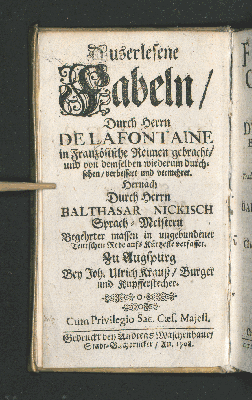 Auserlesene
Fabeln/
Durch Herrn
DE LA FONTAINE
in Französische Reimen gebracht/
und von demselben wiederum durch-
sehen/ verbessert und vermehret.
Hernach
Durch Herrn
BALTHASAR NICKISCH
Sprach-Meistern
Begehrter massen in ungebundener
Teutschen Rede aufs Kürtzeste verfasset.
Zu Augspurg
Bey Joh. Ulrich Krauß/ Burger
und Kupfferstecher.
Cum Privilegio Sac. Cæs. Majest.
Gedruckt bey Andreas Maschenbaur/
Stadt-Buchdrucker/ An.